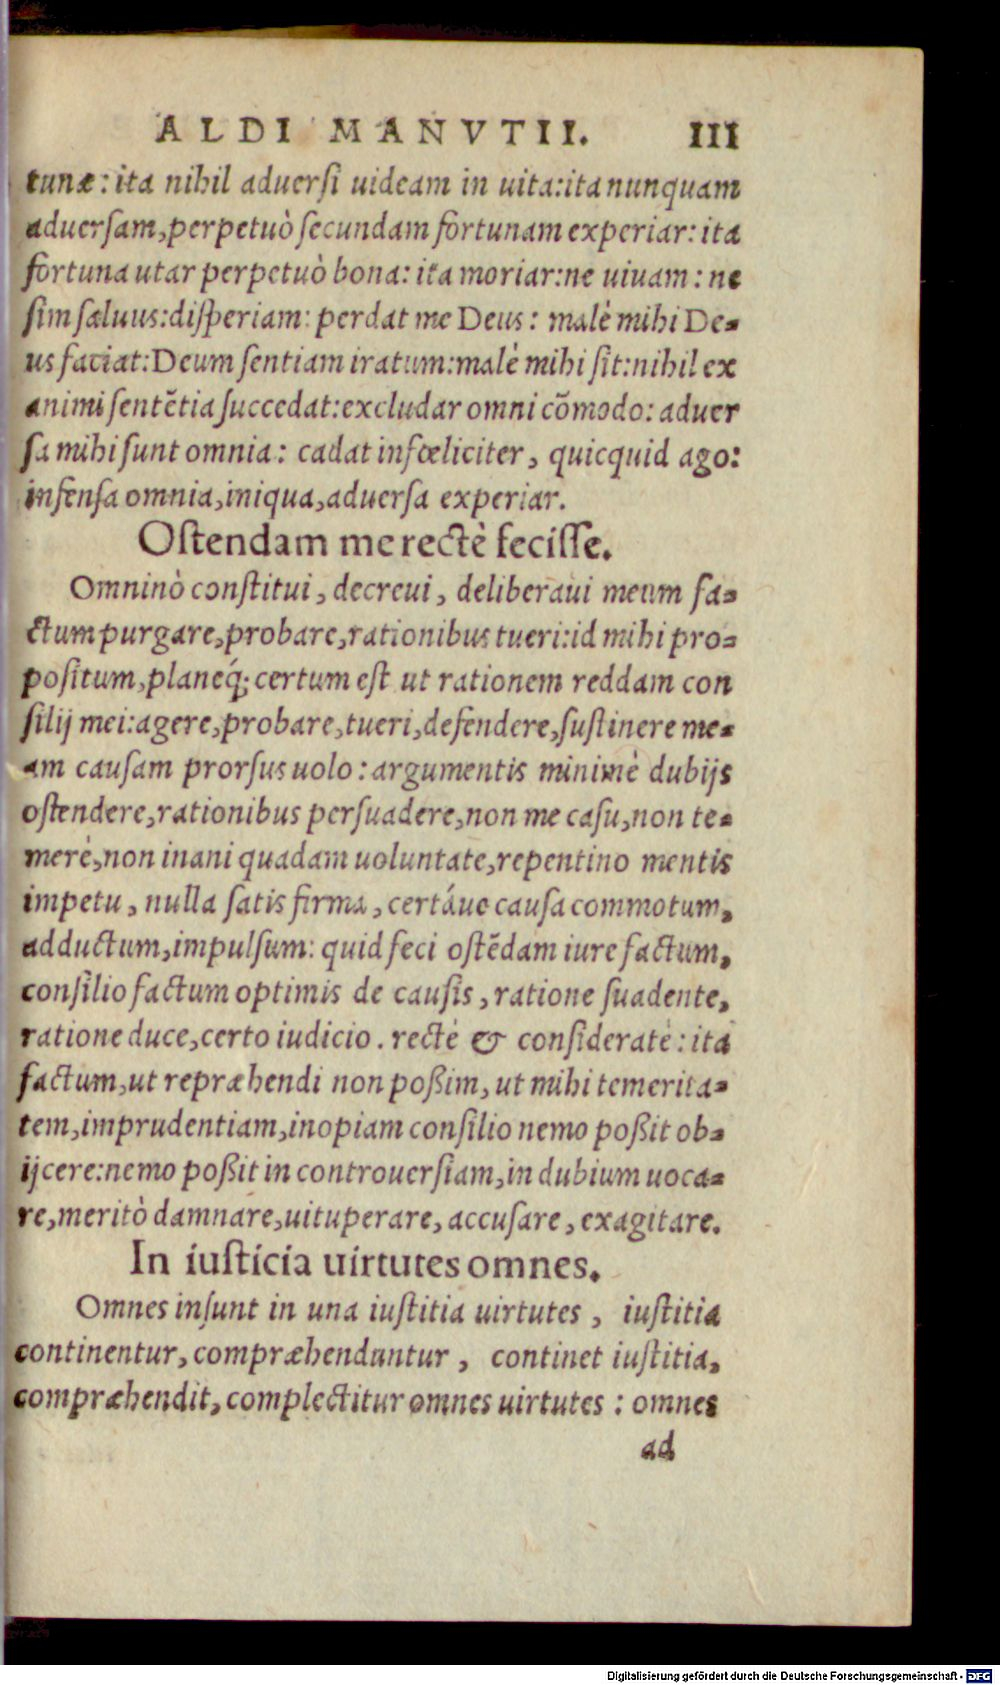 ALDI MANVTII. III
tunæ: ita nihil aduersi uideam in uita: ita nunquam
aduersam, perpetuò secundam fortunam experiar: ita
fortuna utar perpetuò bona: ita moriar: ne uiuam: ne
sim sæluus: disperiam: perdat me Deus: malè mihi De-
us faciat: Deum sentiam iratum: malè mihi sit: nihil ex
animi sentẽtia succedat: excludar omni cõmodo: aduer
sa mihi sunt omnia: cadat infœliciter, quicquid ago:
infensa omnia, iniqua, aduersa experiar.
Ostendam me rectè fecisse.
Omninò constitui, decreui, deliberaui meum fa-
ctum purgare, probare, rationibus tueri: id mihi pro-
positum, planeq́; certum est ut rationem reddam con
silij mei: agere, probare, tueri, defendere, sustinere me-
am causam prorsus uolo: argumentis minimè dubijs
ostendere, rationibus persuadere, non me casu, non te-
merè, non inani quadam uoluntate, repentino mentis
impetu, nulla satis firma, certáue causa commotum,
adductum, impulsum: quid feci ostẽdam iure factum,
consilio factum optimis de causis, ratione suadente,
ratione duce, certo iudicio. rectè & consideratè: ita
factum, ut repræhendi non poßim, ut mihi temerita-
tem, imprudentiam, inopiam consilio nemo poßit ob-
ijcere: nemo poßit in controuersiam, in dubium uoca-
re, meritò damnare, uituperare, accusare, exagitare.
In iusticia uirtutes omnes.
Omnes insunt in una iustitia uirtutes, iustitia
continentur, compræhenduntur, continet iustitia,
compræhendit, complectitur omnes uirtutes: omnes
ad
Digitalisierung gefördert durch die Deutsche Forschungsgemeinschaft - DFG